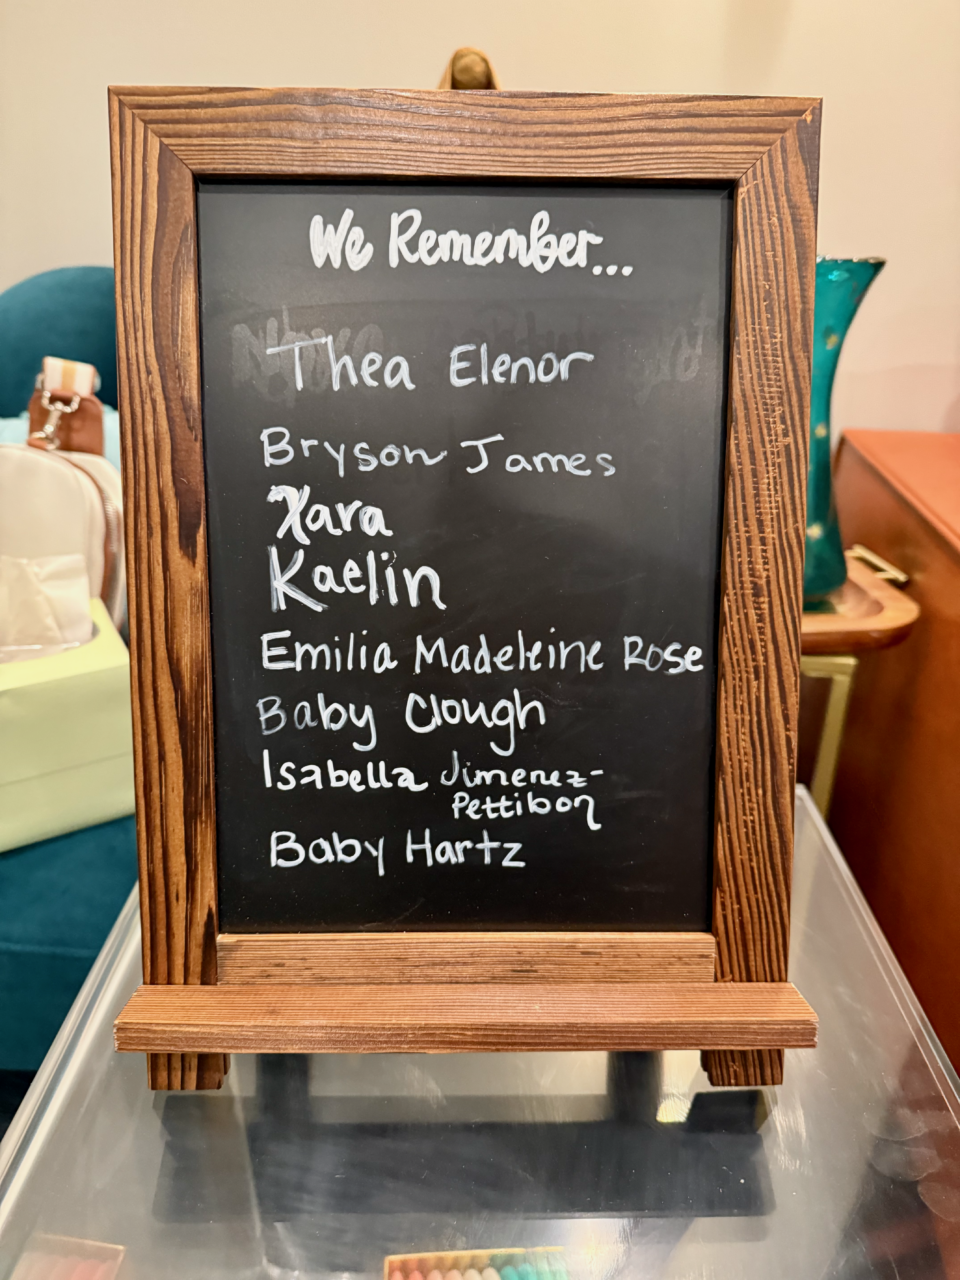 We Remember...
Thea Elenor
Bryson James
Xara
Kaelin
Emilia Madeleine Rose
Baby Clough
Isabella Jimenez-
Pettibon
Baby Hartz